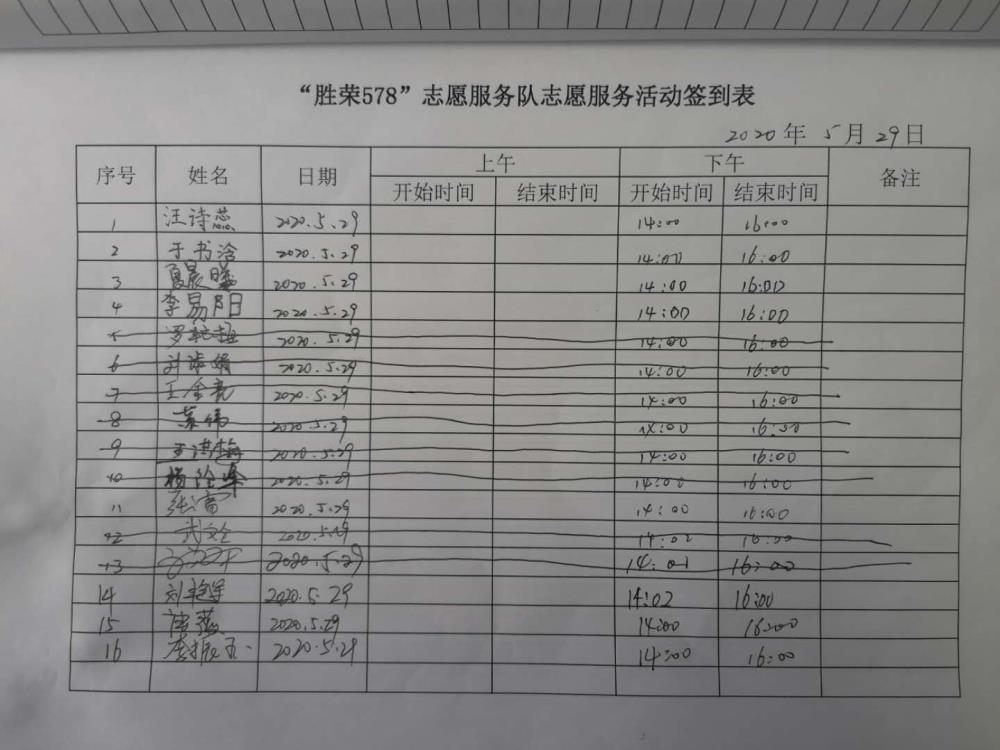 “胜荣578”志愿服务队志愿服务活动签到表
2020年 5月29日
序号 姓名 日期 上午 下午 备注
开始时间 结束时间 开始时间 结束时间
1 汪诗蕊 2020.5.29 14:00 16:00
2 于书涵 2020.5.29 14:00 16:00
3 夏晨曦 2020.5.29 14:00 16:00
4 李易阳 2020.5.29 14:00 16:00
5 罗 2020.5.29 14:00 16:00
6 刘 2020.5.29 14:00 16:00
7 王金亮 2020.5.29 14:00 16:00
8 苏伟 2020.5.29 14:00 16:00
9 王洪梅 2020.5.29 14:00 16:00
10 杨 2020.5.29 14:00 16:00
11 张富 2020.5.29 14:00 16:00
12 武文全 2020.5.29 14:02 16:00
13 2020.5.29 14:01 16:00
14 刘艳军 2020.5.29 14:02 16:00
15 唐燕 2020.5.29 14:00 16:00
16 李振五 2020.5.29 14:00 16:00